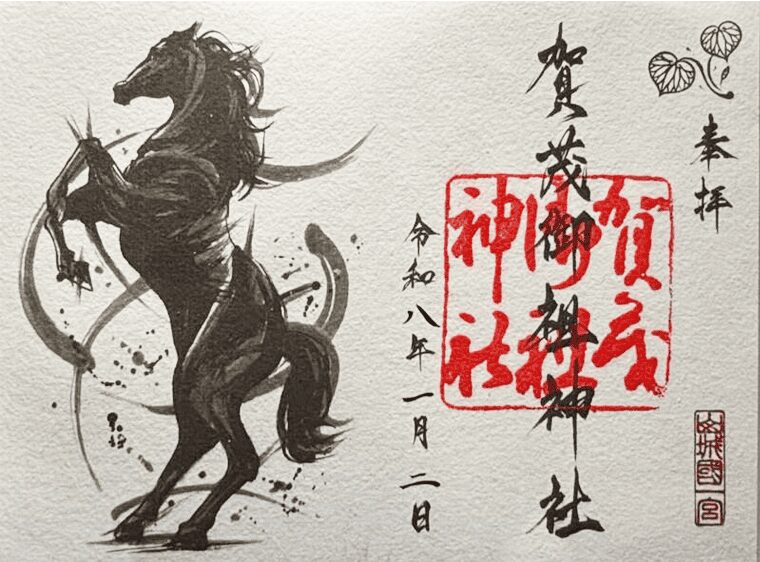 奉拝
山城國一宮
賀茂御祖神社
賀茂
御祖
神社
令和八年一月二日